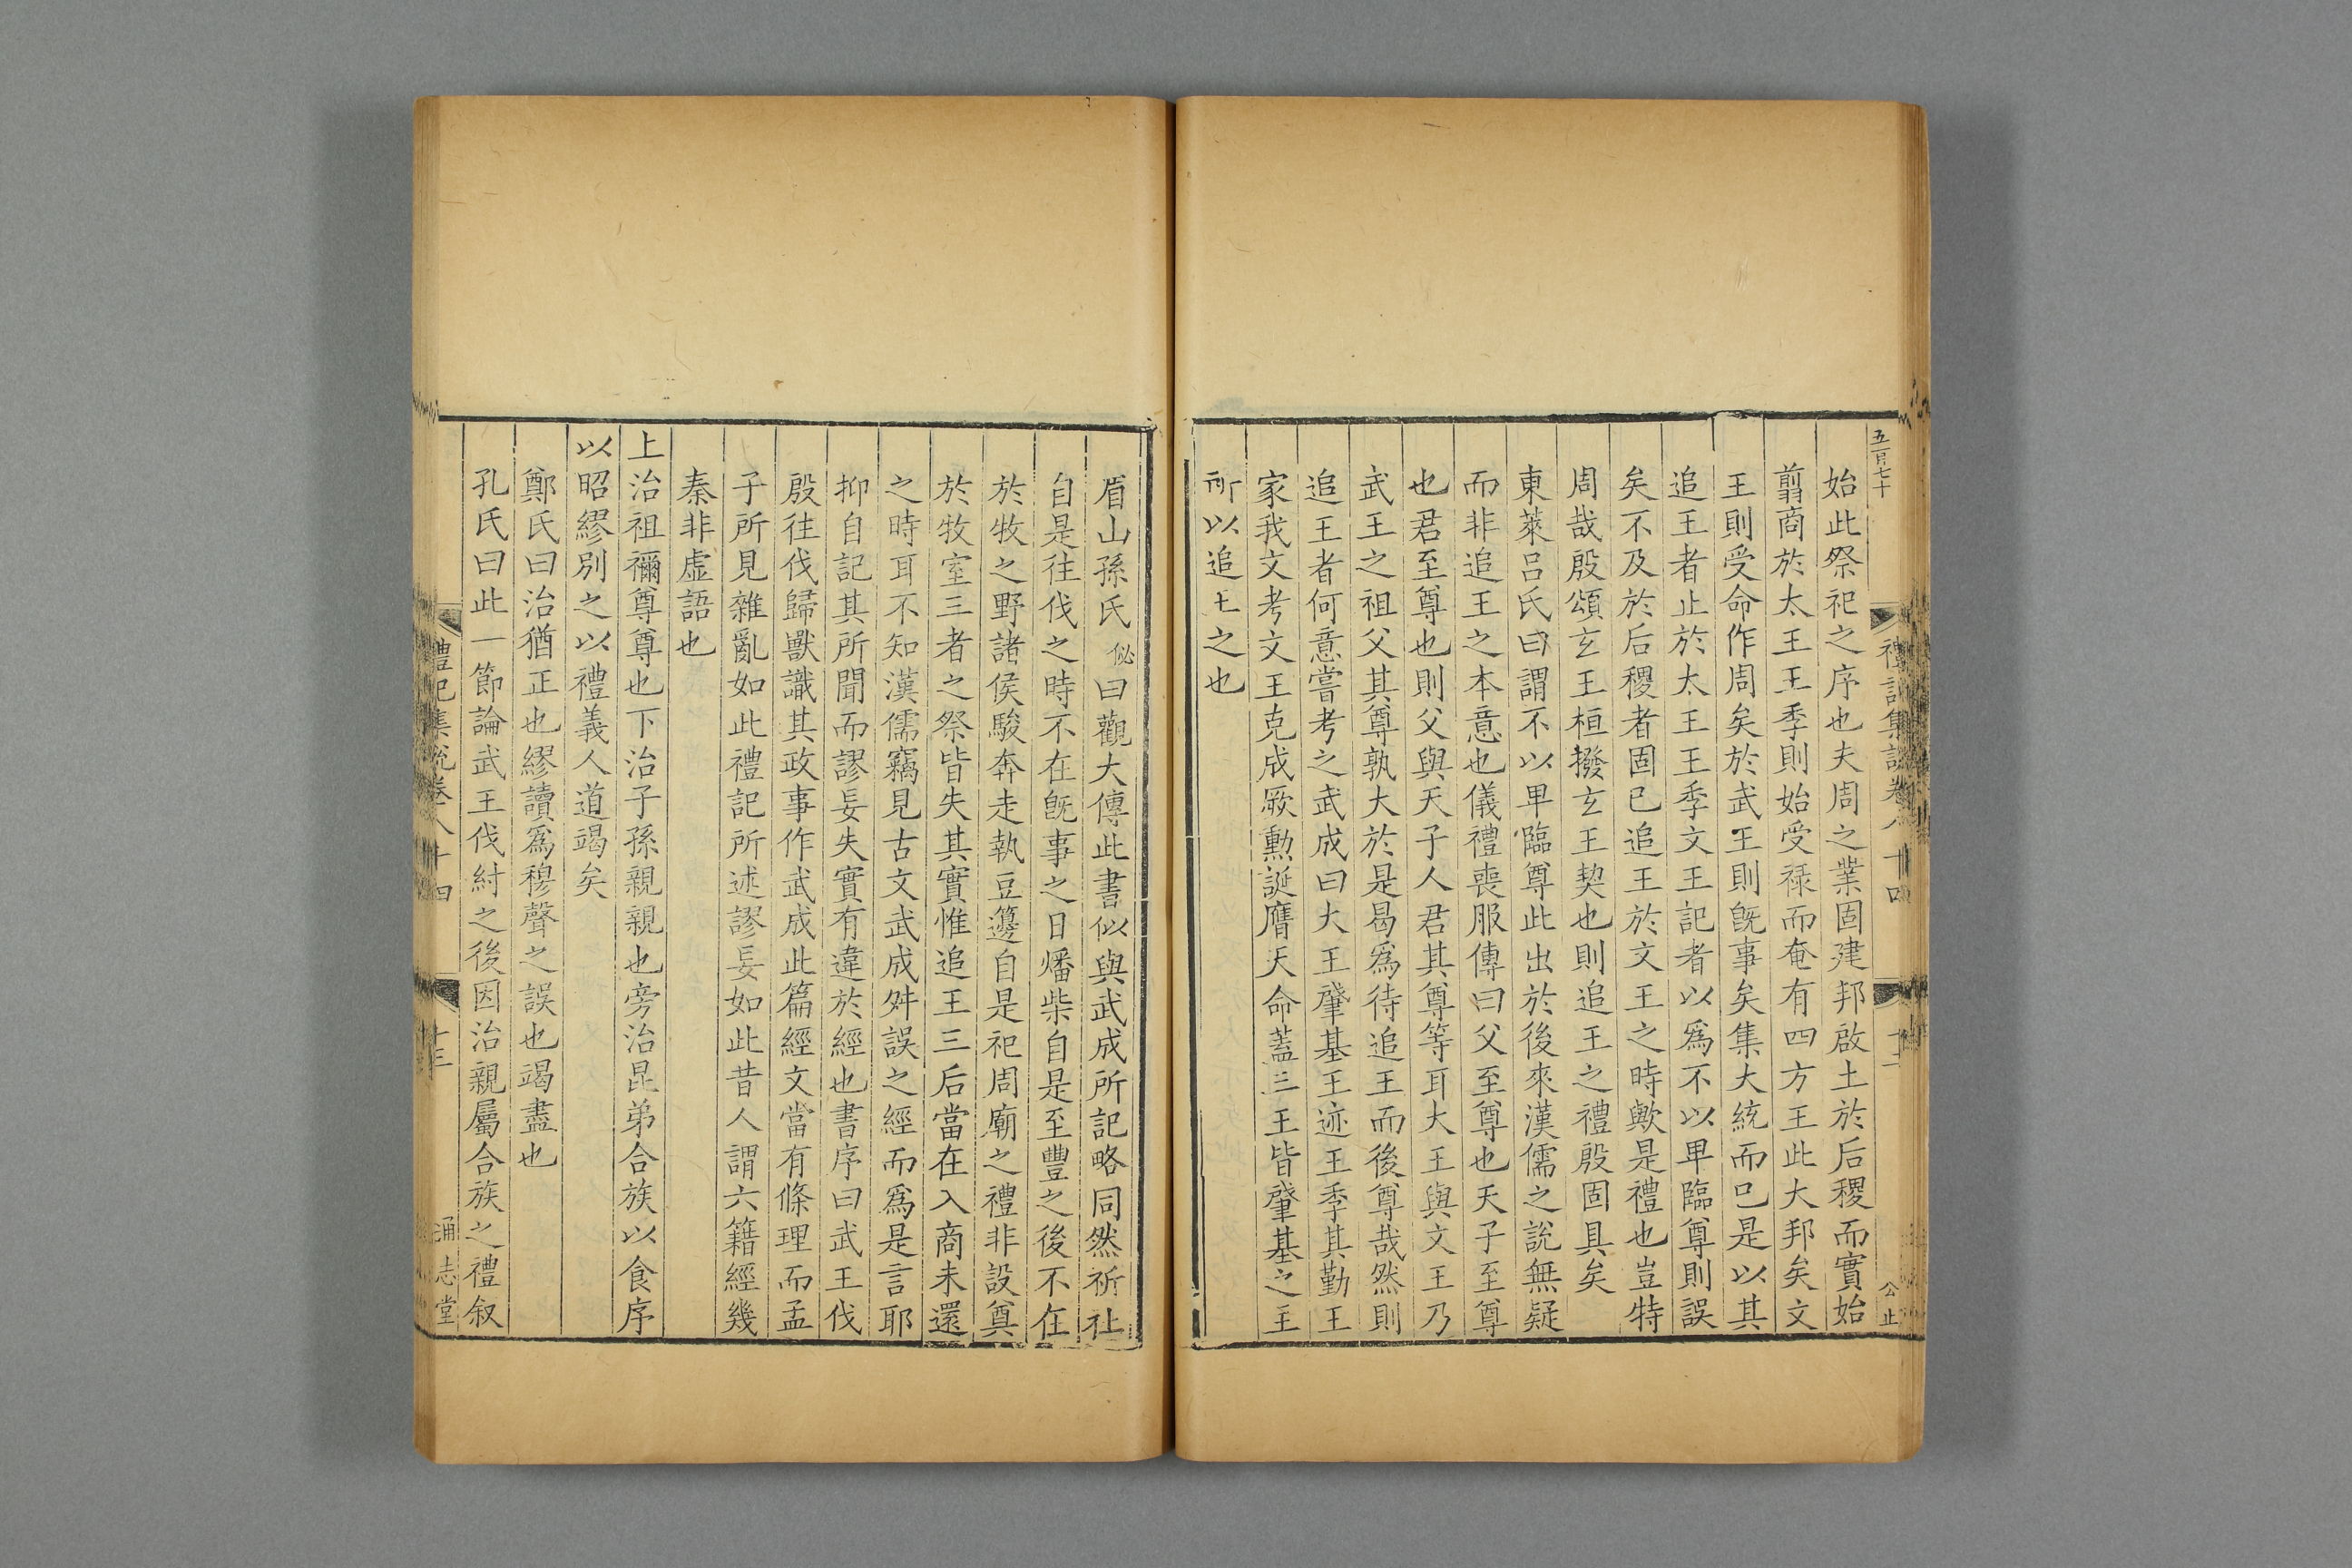 五百七十
禮記集説卷八十四
十二
公止
始此祭祀之序也夫周之業固建邦啟土於后稷而實始
翦商於太王王季則始受禄而奄有四方王此大邦矣文
王則受命作周矣於武王則既事矣集大統而已是以其
追王者止於太王王季文王記者以為不以卑臨尊則誤
矣不及於后稷者固已追王於文王之時歟是禮也豈特
周哉殷頌玄王桓撥玄王契也則追王之禮殷固具矣
東萊吕氏曰謂不以卑臨尊此出於後來漢儒之說無疑
而非追王之本意也儀禮喪服傳曰父至尊也天子至尊
也君至尊也則父與天子人君其尊等耳大王與文王乃
武王之祖父其尊孰大於是曷為待追王而後尊哉然則
追王者何意嘗考之武成曰大王肇基王迹王季其勤王
家我文考文王克成厥勳誕膺天命蓋三王皆肇基之主
所以追王之也
眉山孫氏佖曰觀大傳此書似與武成所記略同然祈社
自是往伐之時不在既事之日燔柴自是至豐之後不在
於牧之野諸侯駿奔走執豆籩自是祀周廟之禮非設奠
於牧室三者之祭皆失其實惟追王三后當在入商未還
之時耳不知漢儒竊見古文武成舛誤之經而為是言耶
抑自記其所聞而謬妄失實有違於經也書序曰武王伐
殷往伐歸獸識其政事作武成此篇經文當有條理而孟
子所見雜亂如此禮記所述謬妄如此昔人謂六籍經幾
秦非虛語也
上治祖禰尊尊也下治子孫親親也旁治昆弟合族以食序
以昭繆别之以禮義人道竭矣
鄭氏曰治猶正也繆讀為穆聲之誤也竭盡也
孔氏曰此一節論武王伐紂之後因治親屬合族之禮叙
禮記集說卷八十四
十三
通志堂